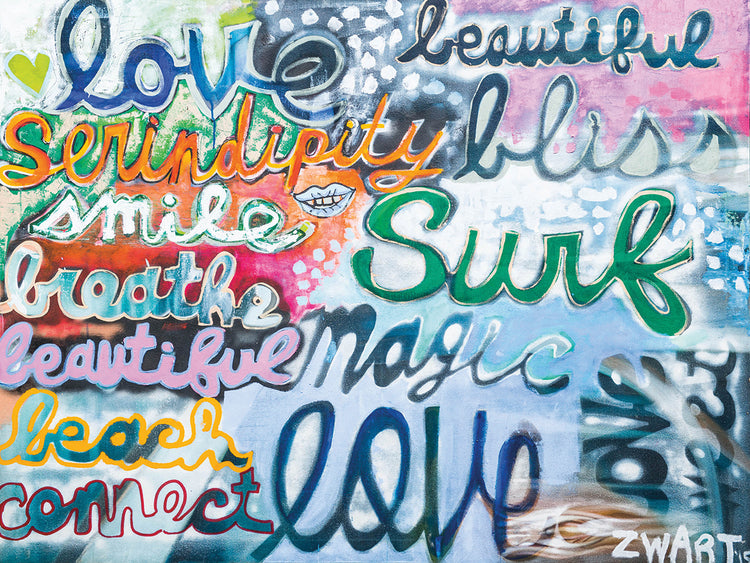 love
beautiful
Serindipity
bliss
smile
Surf
breathe
magic
beautiful
beach
love
connect
love
ZWART